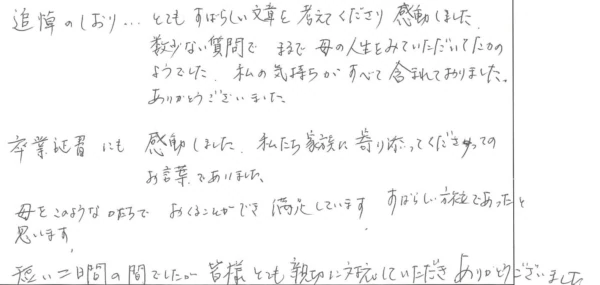 追悼のしおり… とてもすばらしい文章を考えてくださり感動しました。
数少ない質問で まるで母の人生をみていただいてたかの
ようでした。私の気持ちがすべて含まれておりました。
ありがとうございました。
卒業証書にも 感動しました。私たち家族に寄り添ってくださっての
お言葉でありました。
母をこのようなかたちで おくることができ 満足しています すばらしい方法であったと
思います。
短い二日間の間でしたが 皆様とても親切に対応していただきありがとうございました